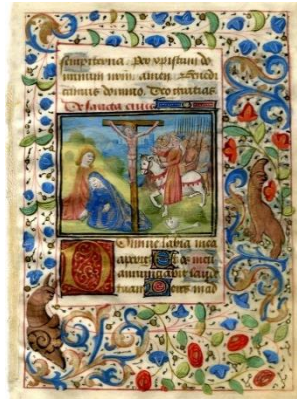 sempiterna. Per xpistum do
minum nrm. amen. Benedi
camus domino. Deo gratias
De sancta cruce
Domine labia mea
aperies Et os meū
annunciabit laude
tuam Deus in ad